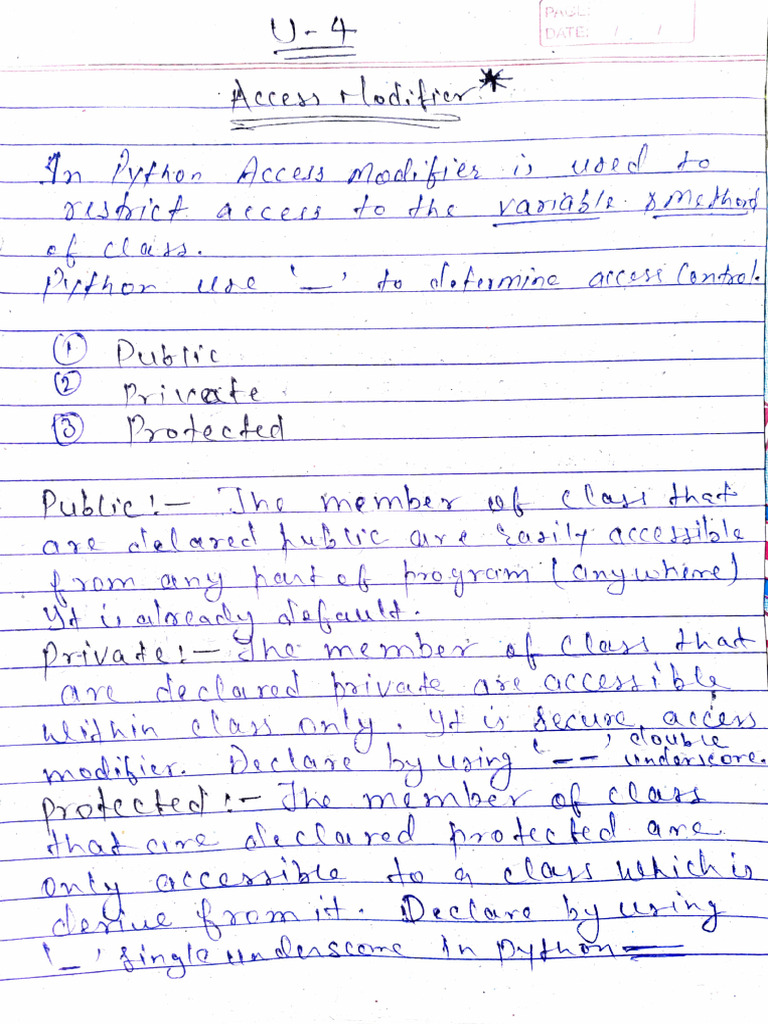 U-4
PAGE:
DATE: / /
Access Modifier*
In Python Access modifier is used to
restrict access to the variable & method
of class.
Python use '_' to determine access control.
① Public
② Private
③ Protected
Public:- The member of class that
are delared public are easily accessible
from any part of program (anywhere)
It is already default.
Private:- The member of class that
are declared private are accessible
within class only. It is secure access
modifier. Declare by using '__' double underscore.
Protected:- The member of class
that are declared protected are
only accessible to a class which is
derive from it. Declare by using
'_' single underscore in python